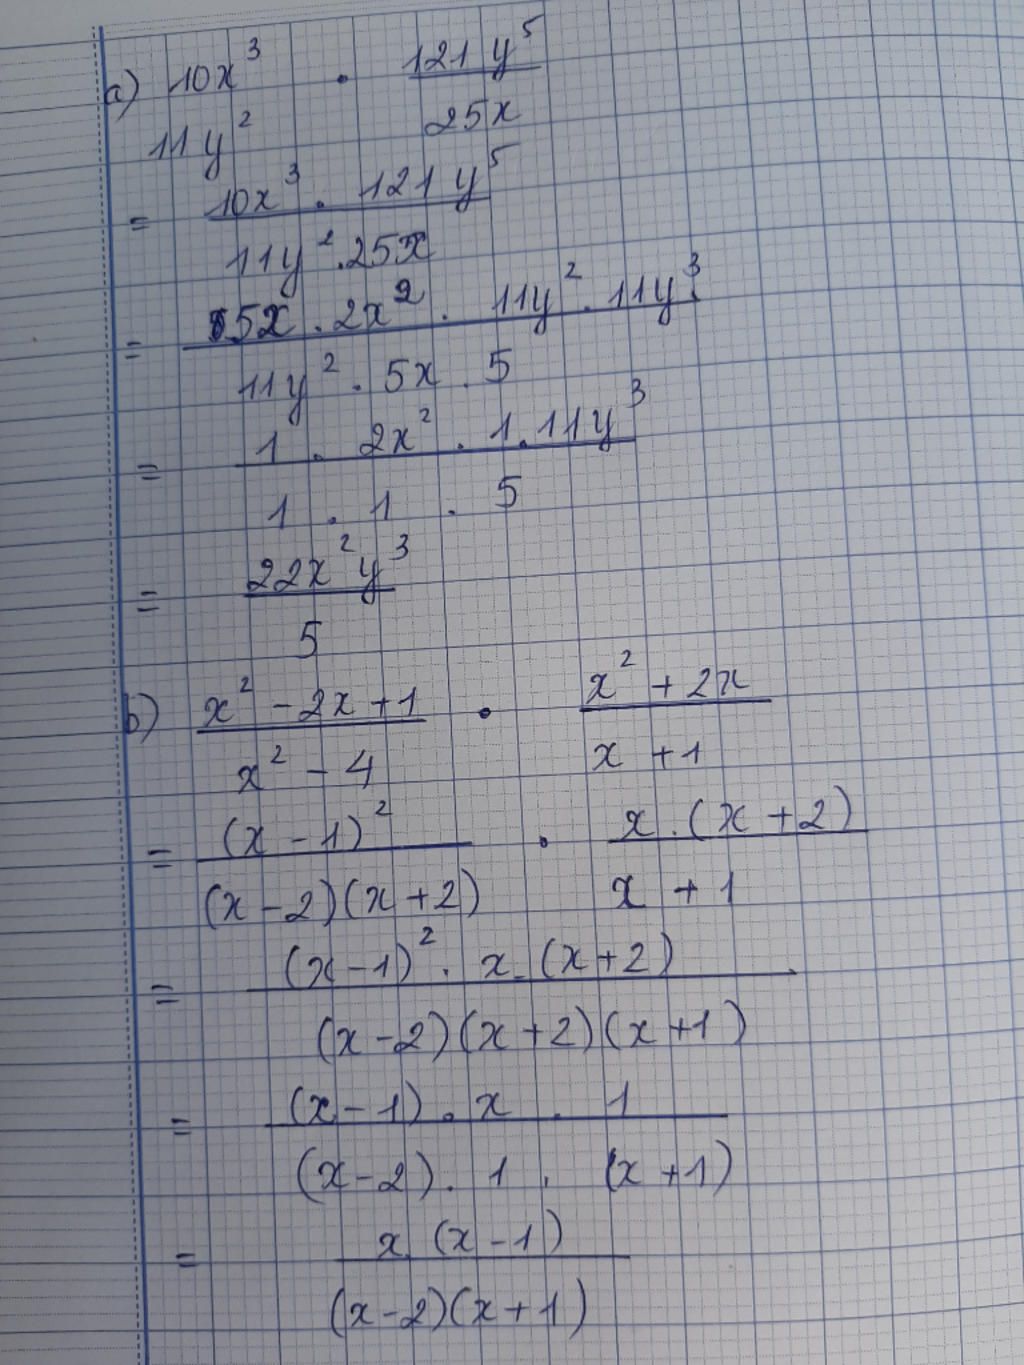 a) 10x³ . 121y⁵
11y² 25x
= 10x³ . 121y⁵
11y² . 25x
= 5x . 2x² . 11y² . 11y³
11y² . 5x . 5
= 1 . 2x² . 1 . 11y³
1 . 1 . 5
= 22x²y³
5
b) x² - 2x + 1 . x² + 2x
x² - 4 x + 1
= (x - 1)² . x . (x + 2)
(x - 2)(x + 2) x + 1
= (x - 1)² . x . (x + 2)
(x - 2)(x + 2)(x + 1)
= (x - 1) . x . 1
(x - 2) . 1 . (x + 1)
= x (x - 1)
(x - 2)(x + 1)